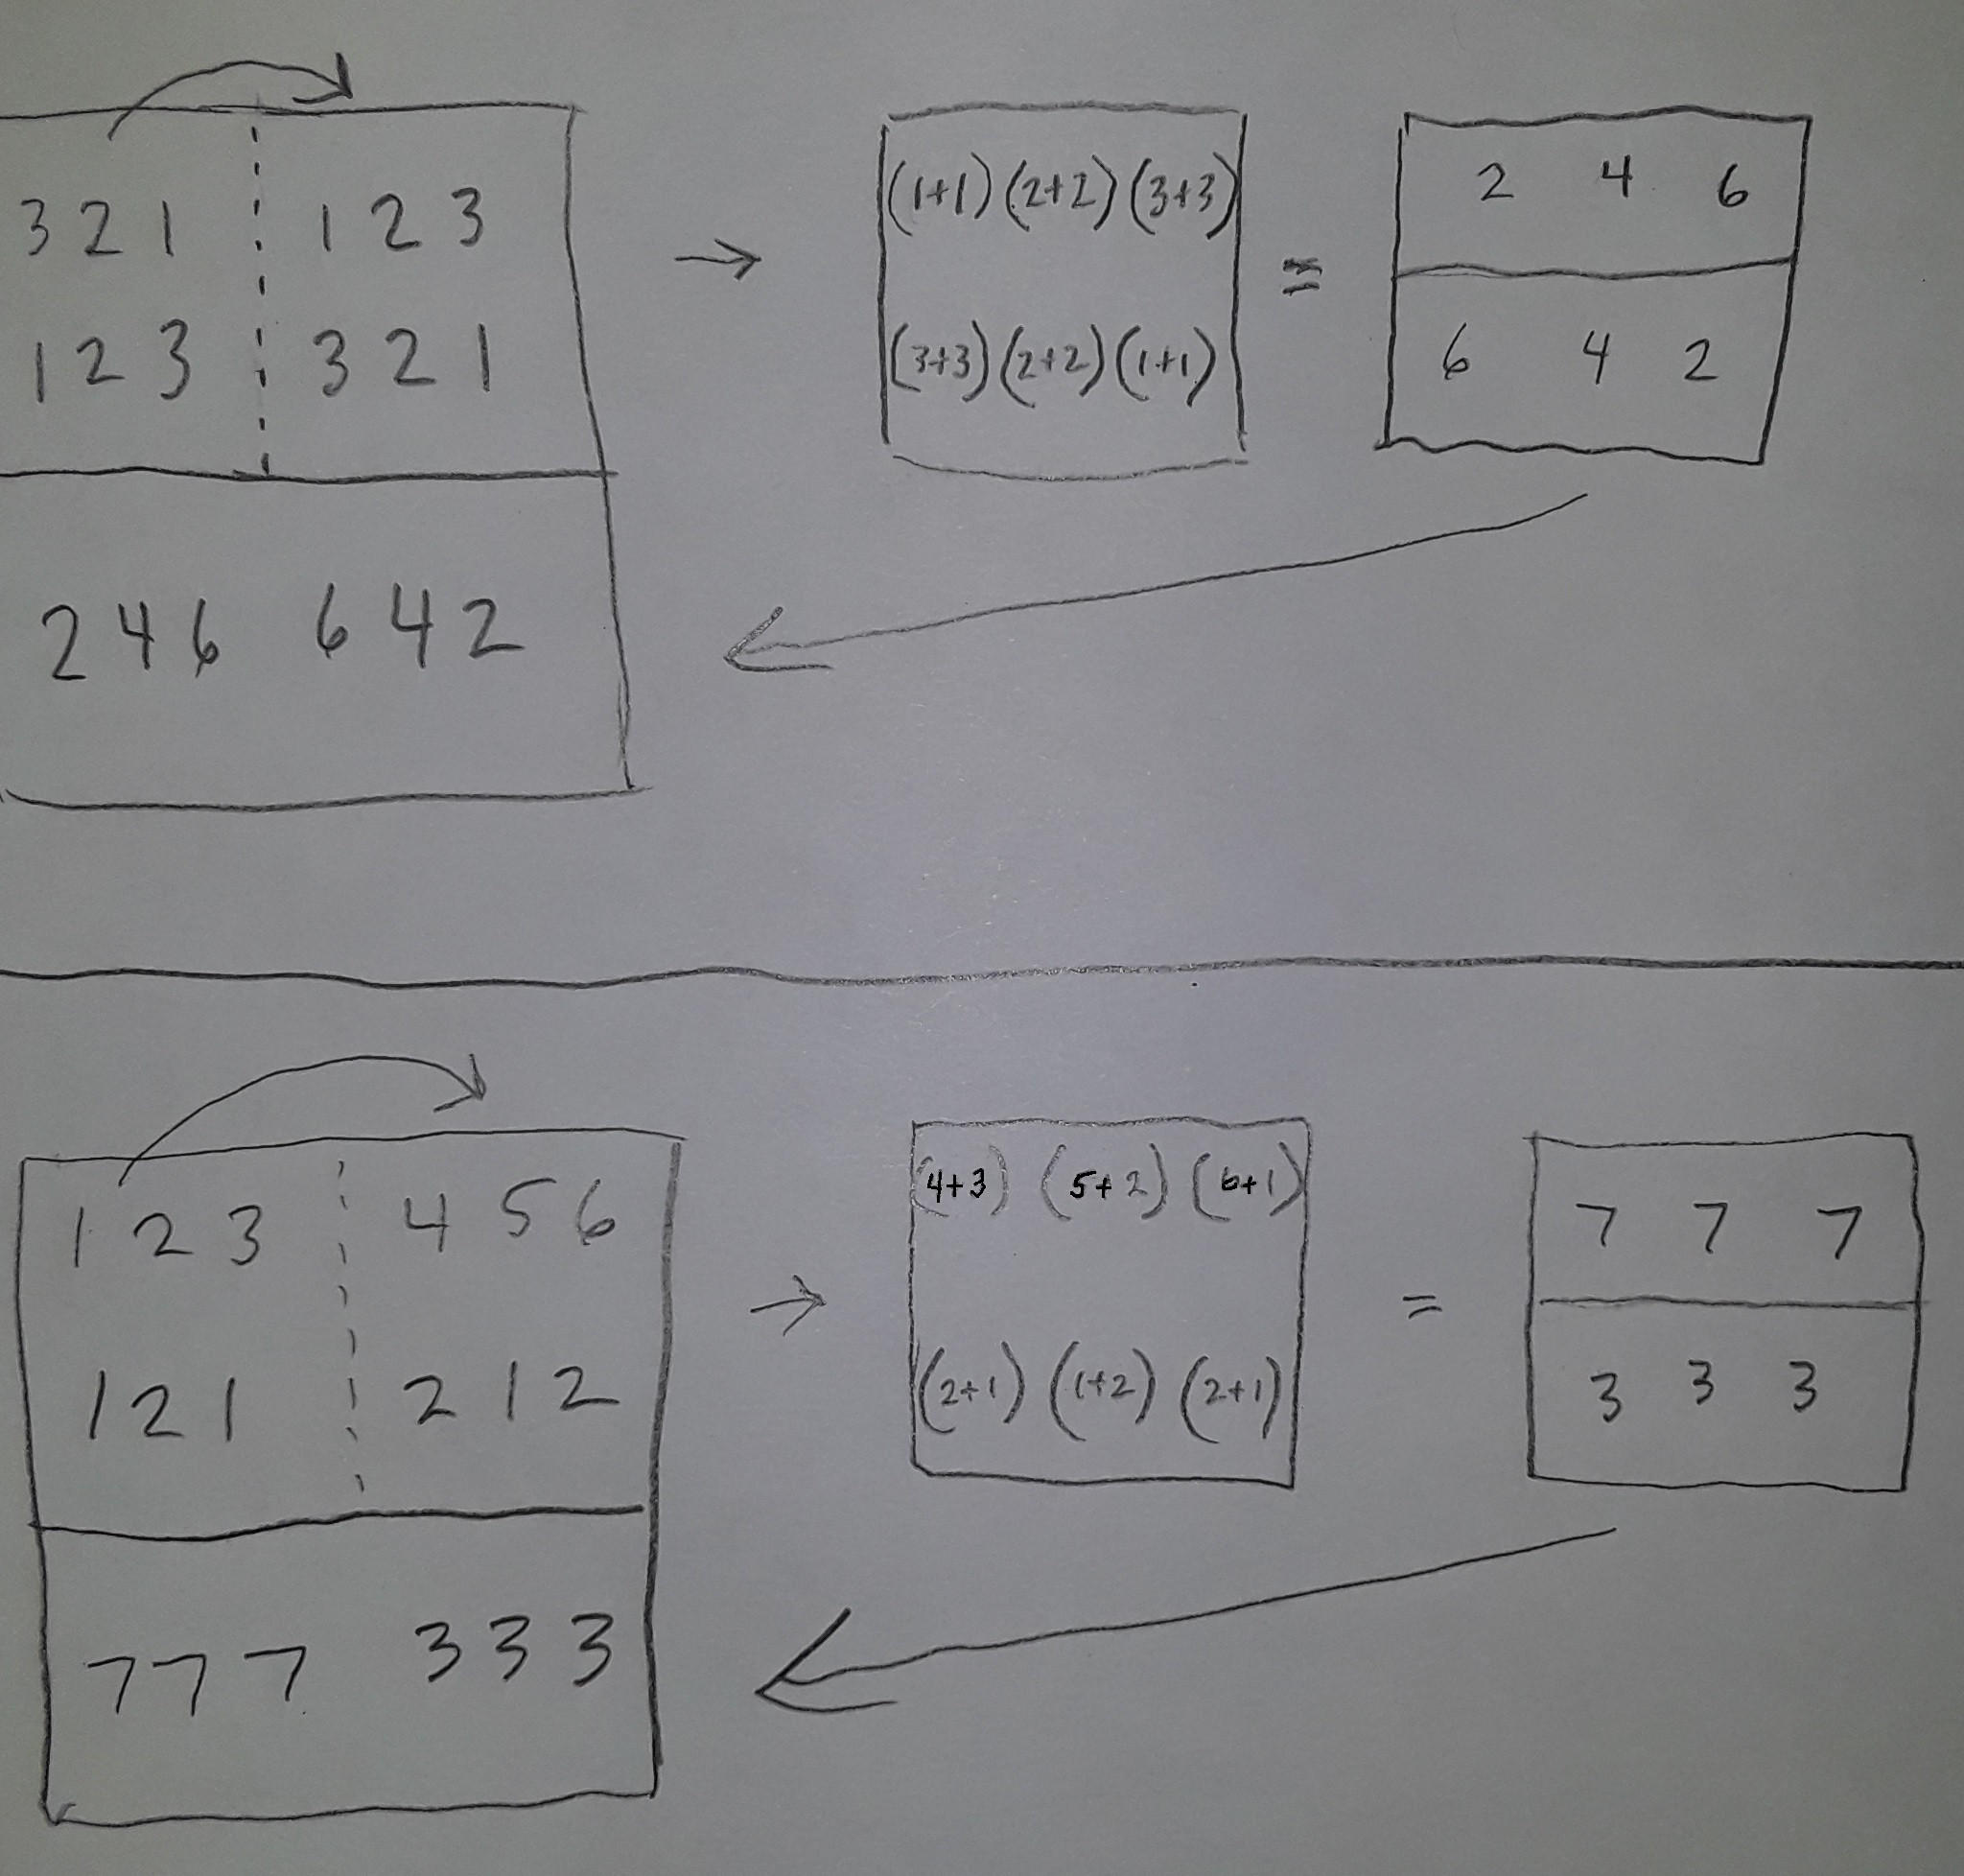 3 2 1 1 2 3
1 2 3 3 2 1
2 4 6 6 4 2
→
(1+1) (2+2) (3+3)
(3+3) (2+2) (1+1)
=
2 4 6
6 4 2
1 2 3 4 5 6
1 2 1 2 1 2
7 7 7 3 3 3
→
(4+3) (5+2) (6+1)
(2+1) (1+2) (2+1)
=
7 7 7
3 3 3